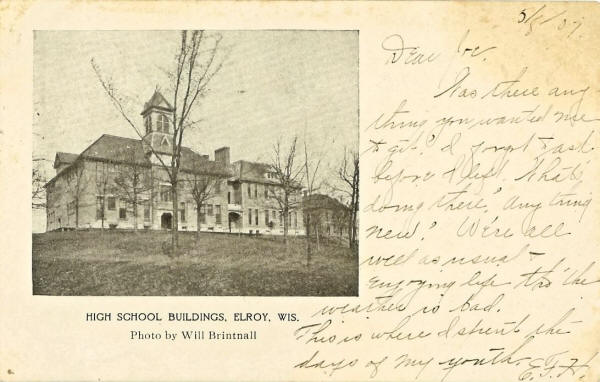 HIGH SCHOOL BUILDINGS, ELROY, WIS.
Photo by Will Brintnall
5/8/07.
Dear Joe.
Was there any
thing you wanted me
to get? I forgot to ask
before I left. What's
doing there? Anything
new? We're all
well as usual &
enjoying life tho' the
weather is bad.
This is where I spent the
days of my youth. E.T.H.